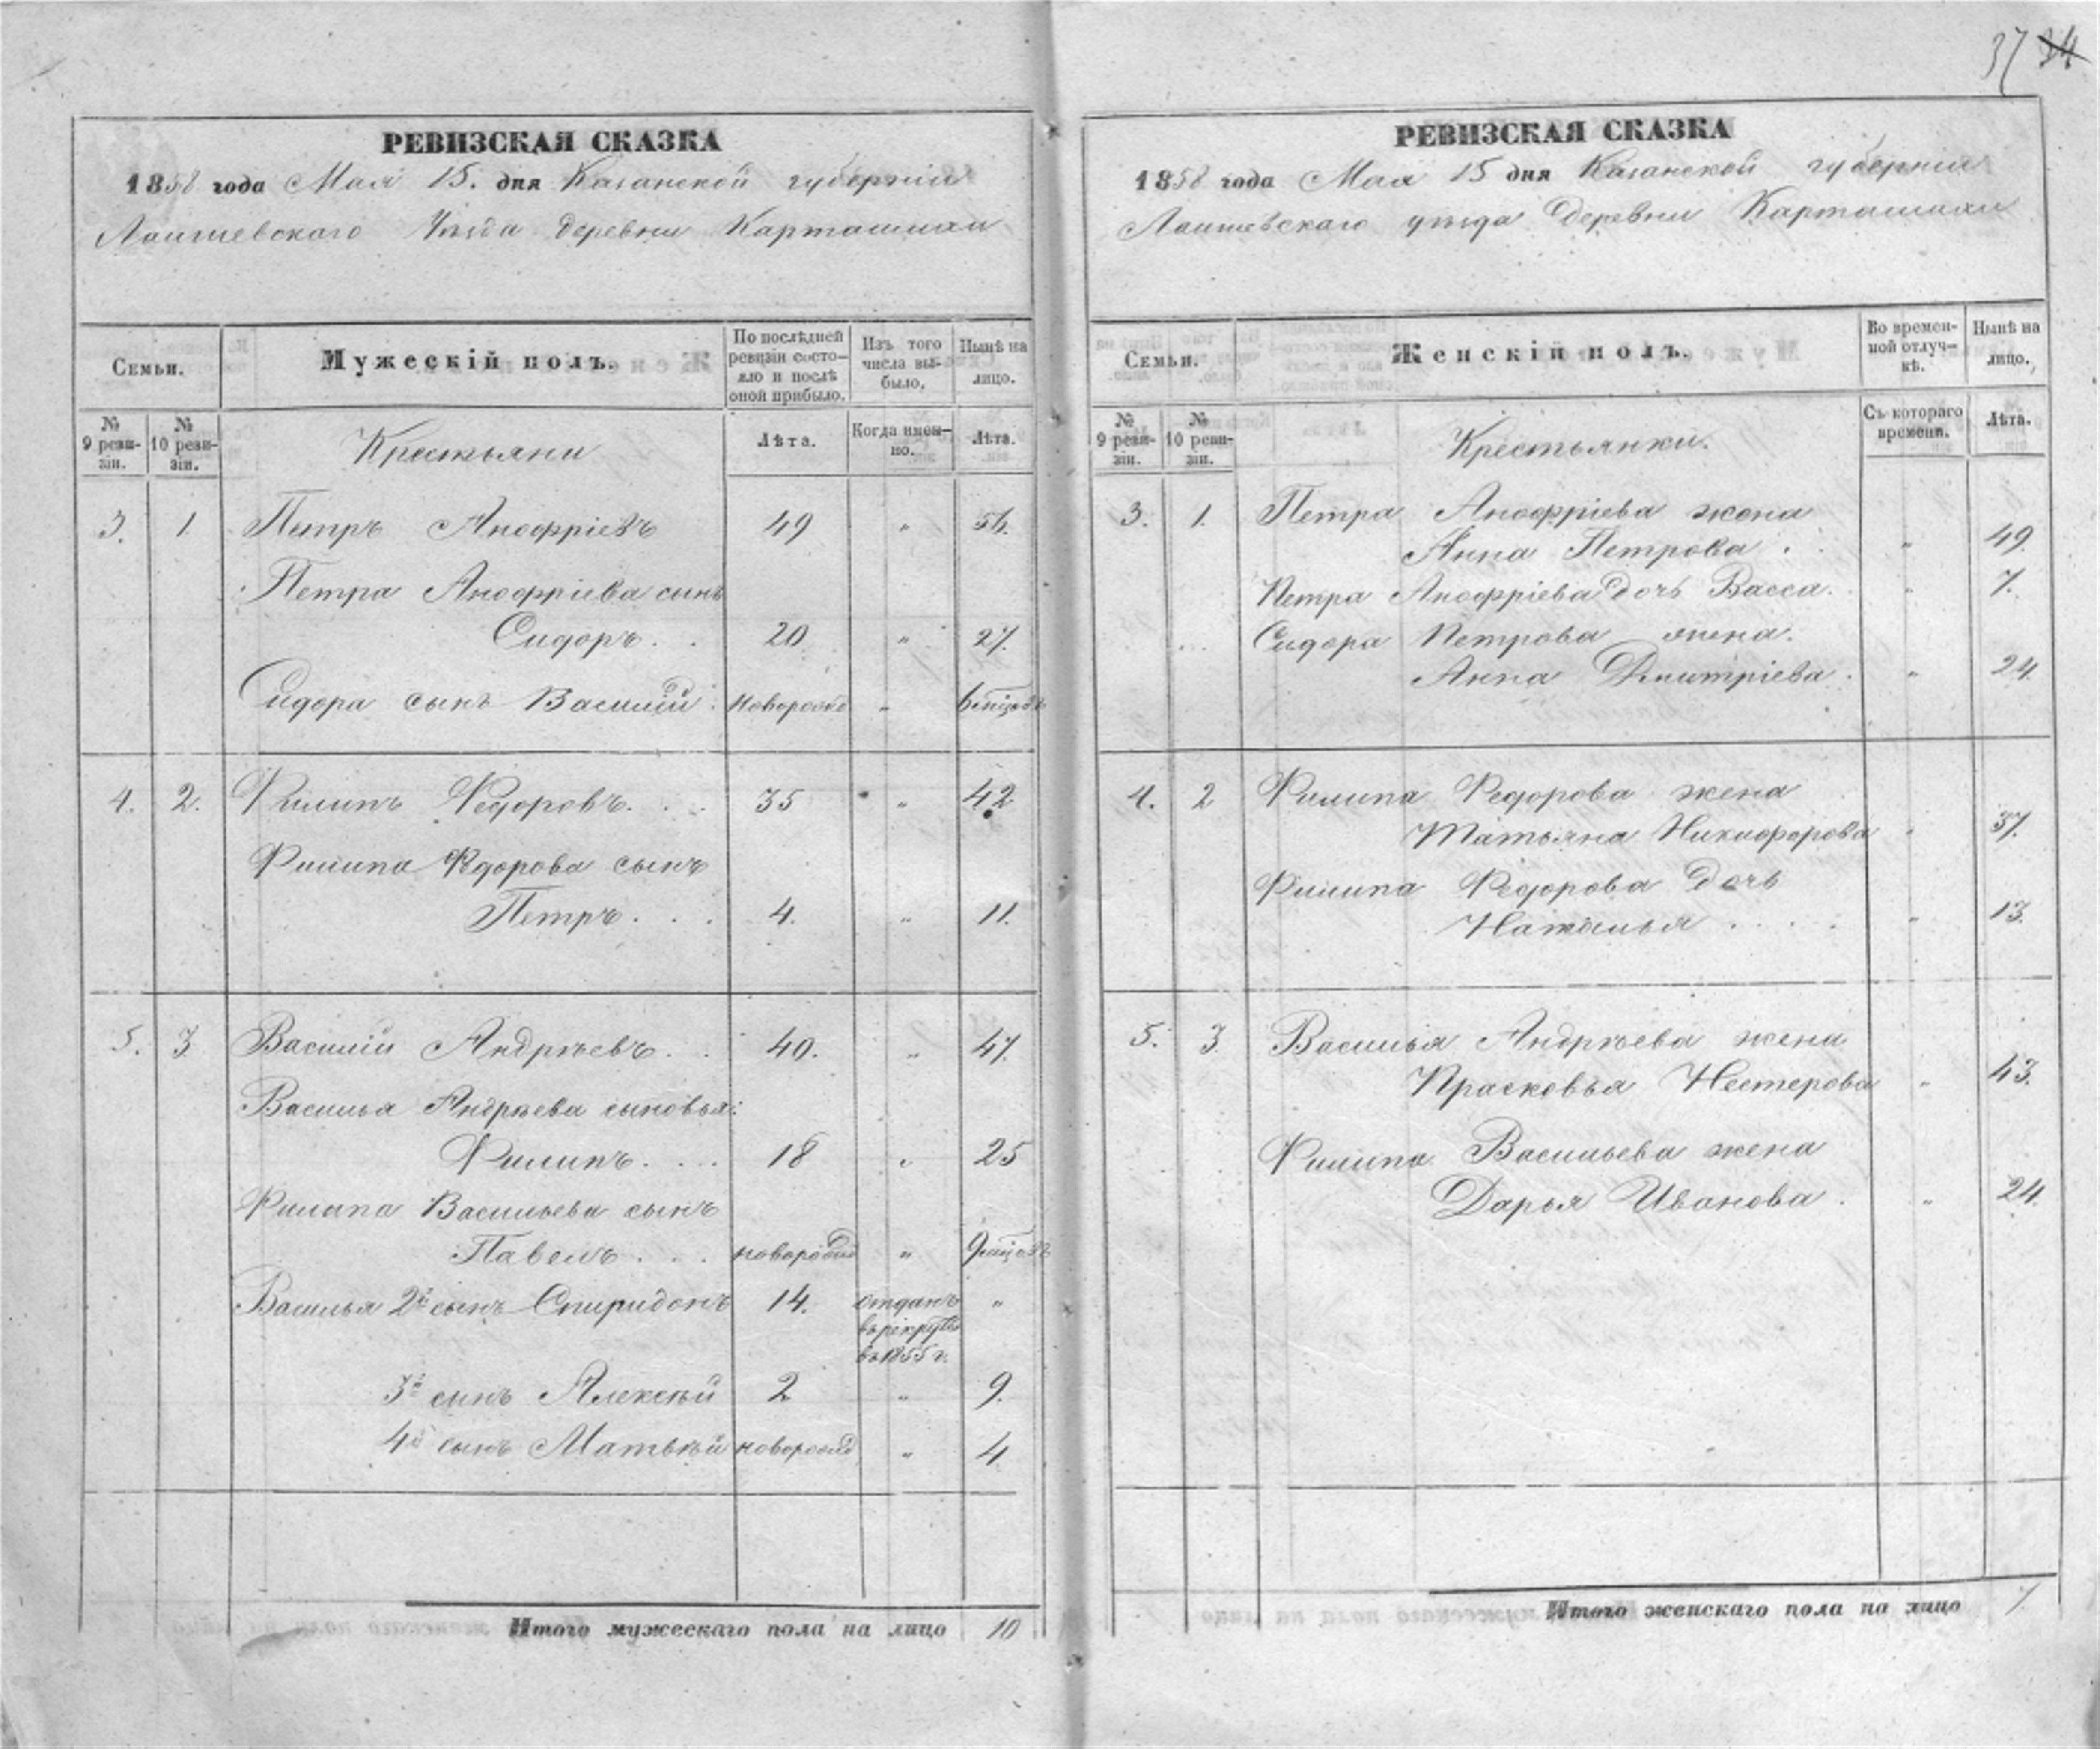 37 34
РЕВИЗСКАЯ СКАЗКА
1858 года Мая 15. дня Казанской губернiи
Лаишевскаго Уѣзда деревни Карташихи
Семьи.
Мужескiй полъ.
По послѣдней ревизiи состояло и послѣ оной прибыло.
Изъ того числа выбыло.
Нынѣ на лицо.
№ 9 ревизiи.
№ 10 ревизiи.
Крестьяни
Лѣта.
Когда именно.
Лѣта.
3. 1. Петръ Анофрiевъ 49 " 56.
Петра Анофрiева сынъ
Сидоръ . . 20 " 27.
Сидора сынъ Василiй новорожд " 6 мѣцовъ
4. 2. Филипъ Федоровъ. . . 35 " 42
Филипа Федорова сынъ
Петръ . . . 4. " 11.
5. 3 Василiй Андрѣевъ . . 40. " 47.
Василья Андрѣева сыновья:
Филипъ . . . 18 " 25
Филипа Васильева сынъ
Павелъ . . . новорожд " 9 мѣцовъ
Василья 2й сынъ Спиридонъ 14. отданъ "
въ рекруты
въ 1855 г.
3й сынъ Алексѣй 2 " 9.
4й сынъ Матвѣй новорожд " 4
Итого мужескаго пола на лицо 10
РЕВИЗСКАЯ СКАЗКА
1858 года Мая 15 дня Казанской губернiи
Лаишевскаго уѣзда Деревни Карташихи
Семьи.
Женскiй полъ.
Во временной отлучкѣ.
Нынѣ на лицо.
№ 9 ревизiи.
№ 10 ревизiи.
Крестьянки.
Съ котораго времени.
Лѣта.
3. 1. Петра Анофрiева жена
Анна Петрова . " 49.
Петра Анофрiева дочь Васса. " 7.
Сидора Петрова жена.
Анна Дмитрiева . " 24.
4. 2 Филипа Федорова жена
Татьяна Никифорова " 37.
Филипа Федорова дочь
Наталья . . . . " 13.
5. 3. Василья Андрѣева жена
Прасковья Нестерова " 43.
Филипа Васильева жена
Дарья Иванова . " 24.
Итого женскаго пола на лицо 7